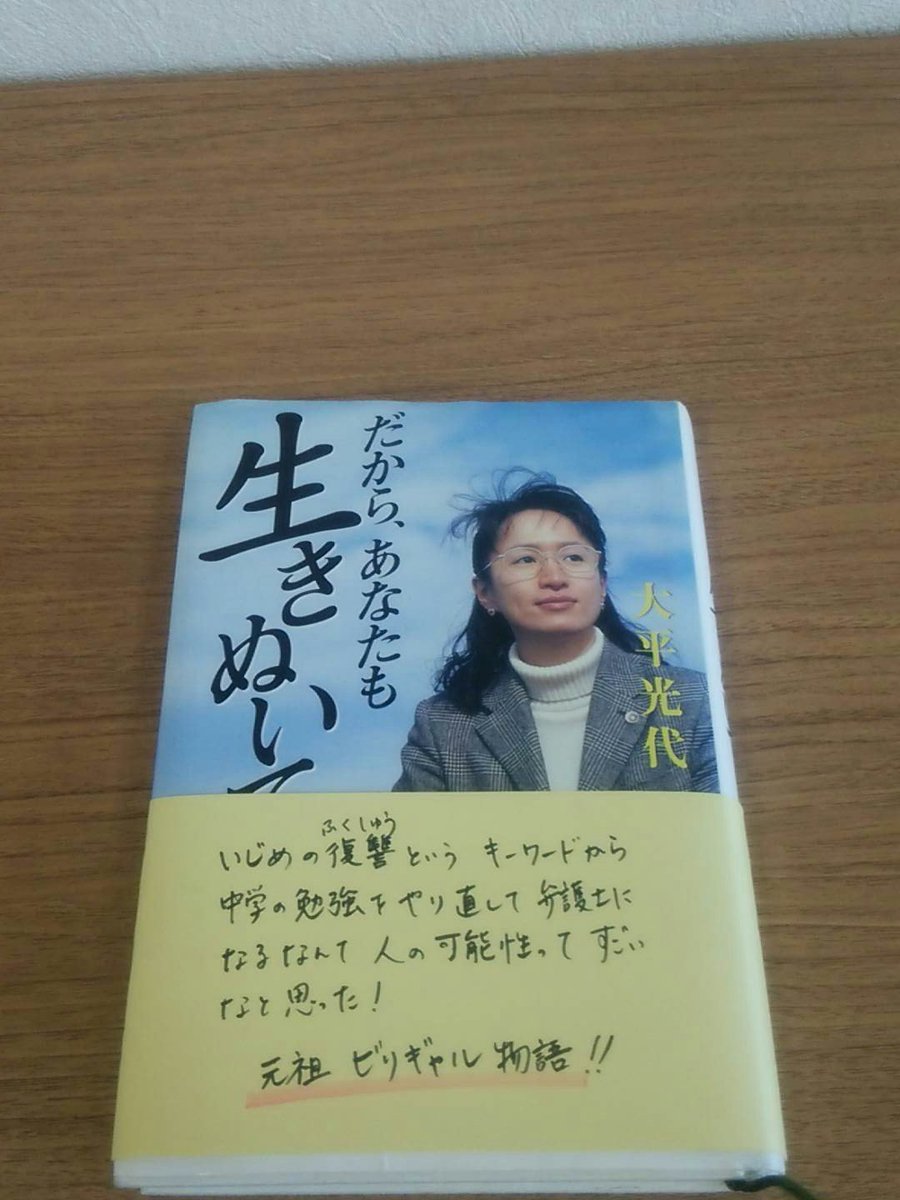 だから、あなたも
生きぬいて
大平光代
ふくしゅう
いじめの復讐という キーワードから
中学の勉強をやり直して 弁護士に
なるなんて 人の可能性って すごい
なと思った!
元祖 ビリギャル 物語!!